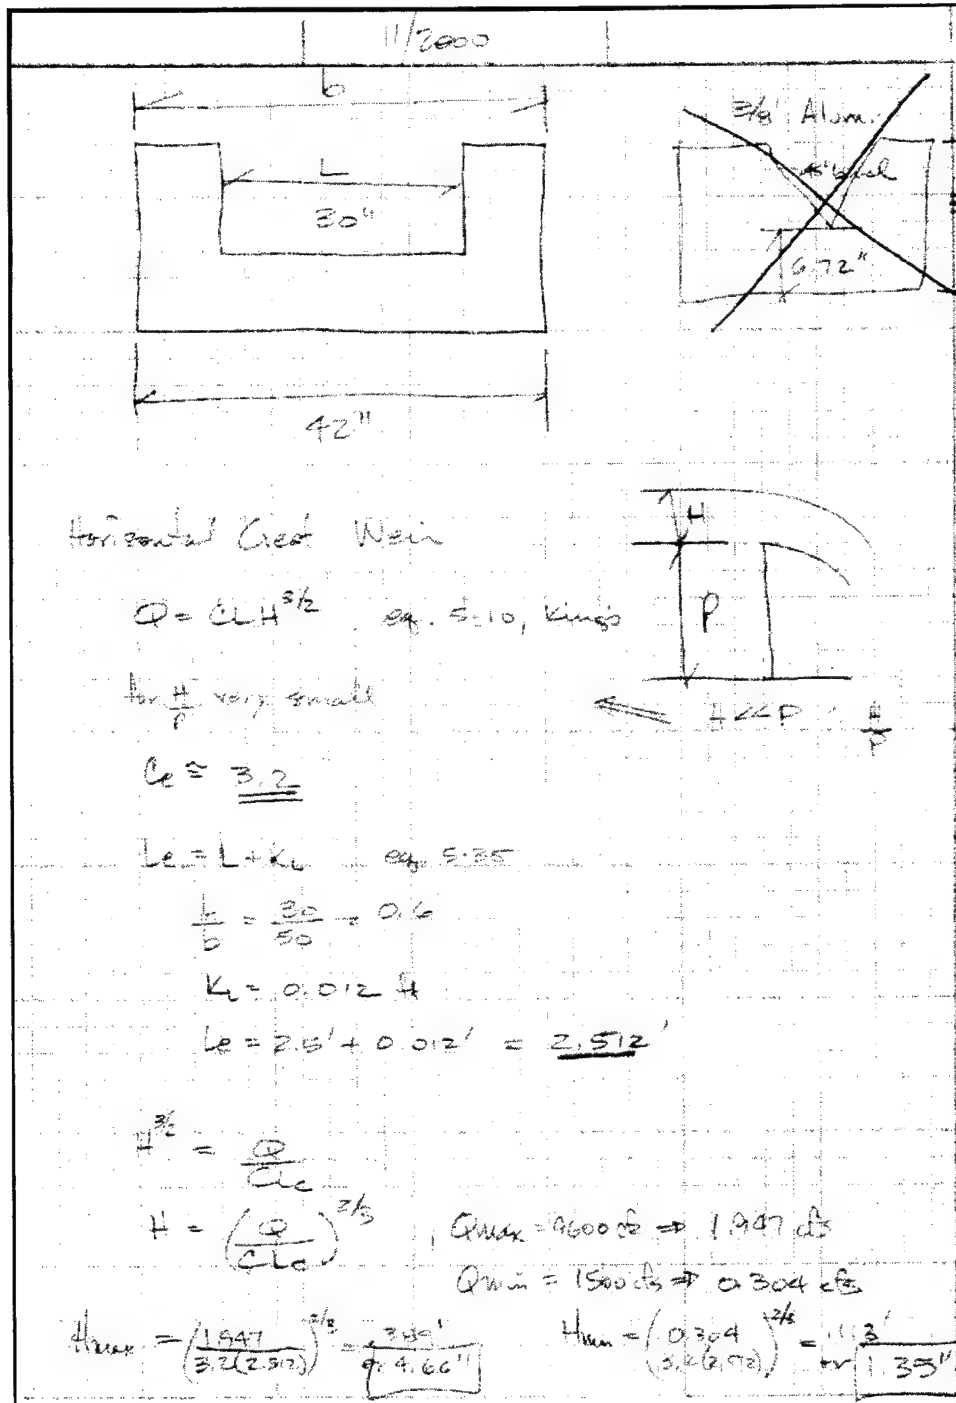 11/2000
b
3/8" Alum.
L
30"
6.72"
42"
H
Horizontal Crest Weir
Q = CLH^3/2 eq. 5-10, King's
P
for H/P very small
H<<P H/P
Ce ≅ 3.2
Le = L + KL eq. 5-35
L/b = 30/50 = 0.6
KL = 0.012 ft
Le = 2.5' + 0.012' = 2.512'
H^3/2 = Q/CLe
H = (Q/CLe)^2/3 , Qmax = 9600 cfs ⇒ 1.947 cfs
Qmin = 1500 cfs ⇒ 0.304 cfs
Hmax = (1.947/3.2(2.512))^2/3 = or 4.66" Hmin = (0.304/3.2(2.512))^2/3 = or 1.35"